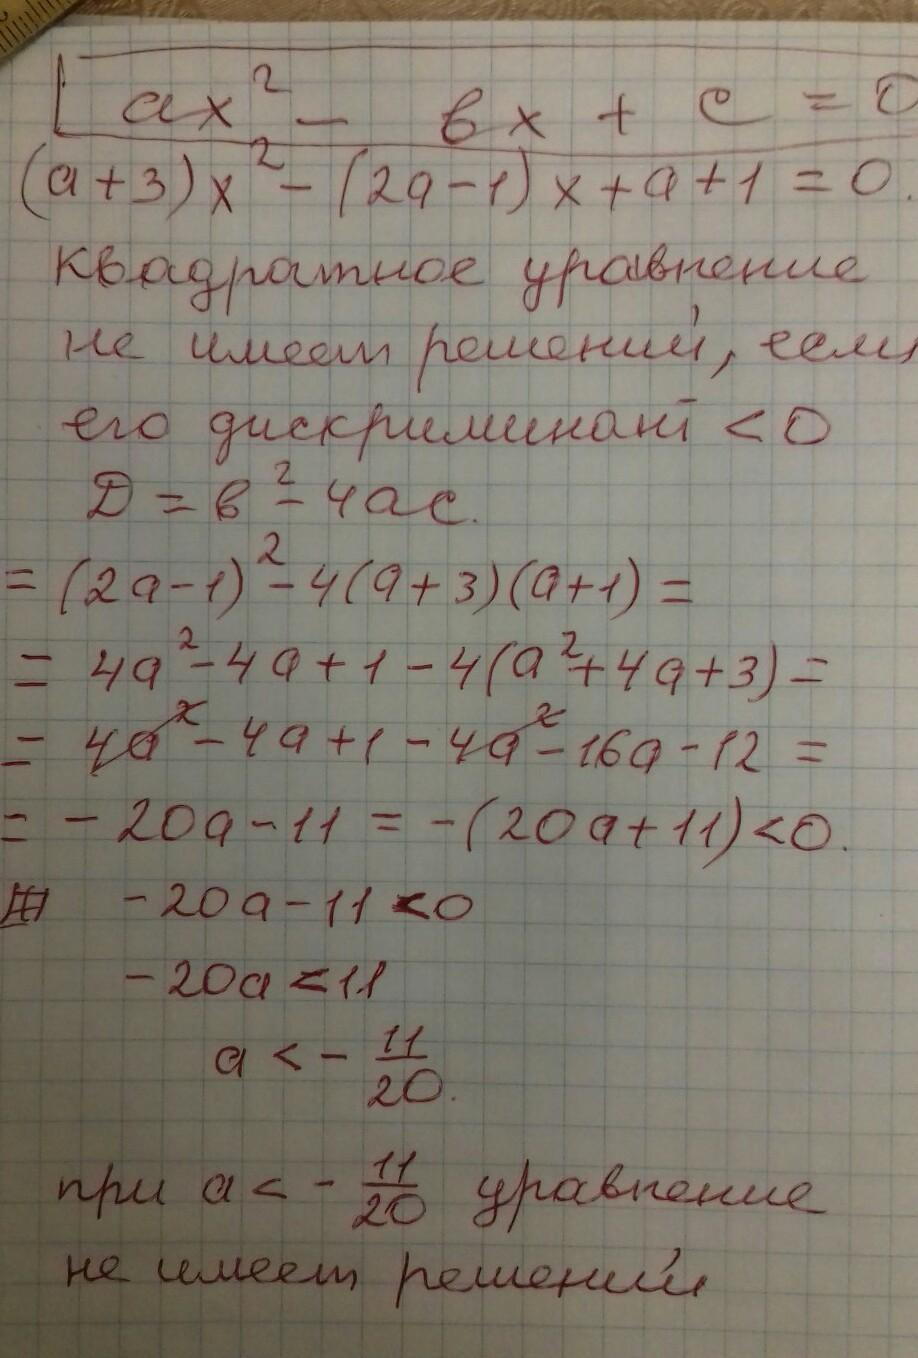 ax² - вx + c = 0
(a+3)x² - (2a-1)x + a + 1 = 0.
квадратное уравнение
не имеет решений, если
его дискриминант < 0
D = в² - 4ac.
= (2a-1)² - 4(a+3)(a+1) =
= 4a² - 4a + 1 - 4(a² + 4a + 3) =
= 4a² - 4a + 1 - 4a² - 16a - 12 =
= - 20a - 11 = -(20a + 11) < 0.
-20a - 11 < 0
-20a < 11
a < - 11/20.
при a < - 11/20 уравнение
не имеет решений